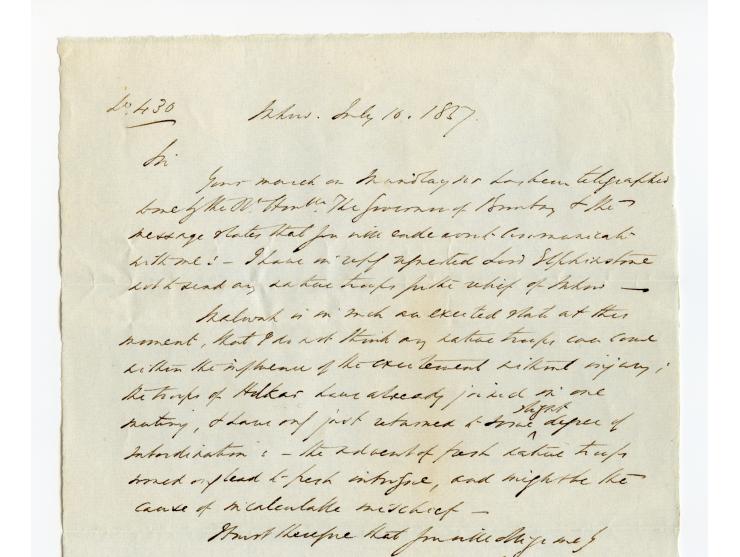 No. 430
Mhow. July 10. 1857.
Sir
Your march on has been telegraphed
to me by the Rt. Honble. The Governor of Bombay & the
message states that you will endeavour to communicate
with me: - I have in reply requested Lord Elphinstone
not to send any native troops for the relief of Mhow —
Malwah is in such an excited state at this
moment, that I do not think any native troops can come
within the influence of the excitement without injury;
the troops of Holkar have already joined in one
mutiny, & have only just returned to some slight degree of
subordination: - the advent of fresh native troops
would only lead to fresh intrigue, and might be the
cause of incalculable mischief —
I trust therefore that you will oblige me by